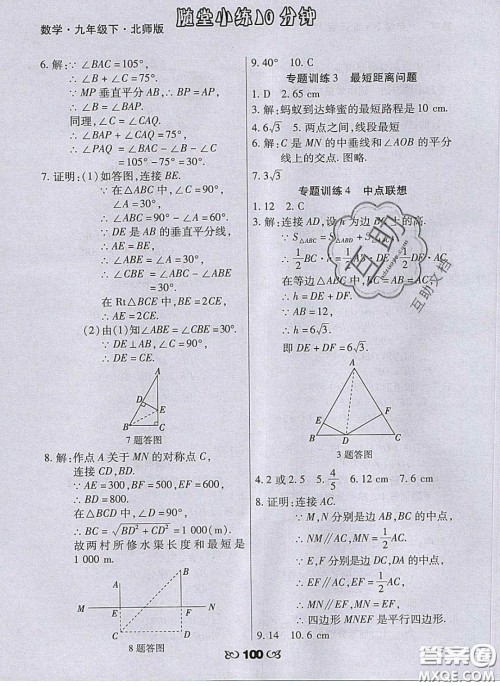 数学·九年级下·北师版
随堂小练10分钟
6.解:∵∠BAC=105°,
∴∠B+∠C=75°.
∵MP垂直平分AB,
∴∠B=∠BAP.
同理,∠C=∠CAQ,
∴∠BAP+∠CAQ=75°,
∴∠PAQ=∠BAC-∠B-∠C
=105°-75°=30°.
7.证明:(1)如答图,连接BE.
∵在△ABC中,∠C=90°,
∠A=30°,
∴∠CBA=60°.
∵DE是AB的垂直平分线,
∴AE=BE,
∴∠ABE=∠A=30°,
∴∠CBE=30°.
在Rt△BCE中,
BE=2CE,
∴AE=2CE.
(2)由(1)知∠ABE=∠CBE=30°.
∵DE⊥AB,∠C=90°,
∴DE=CE.
A
D
E
B
C
7题答图
8.解:作点A关于MN的对称点C,
连接CD,BD.
∵AE=300,BF=500,EF=600,
∴BD=800.
∴BC=√BD²+CD²=1 000(m).
故两村所修水渠长度和最短是
1 000 m.
B
A
M
N
E
F
C
D
8题答图
9.40° 10.C
专题训练3 最短距离问题
1.D 2.65 cm
3.解:蚂蚁到达蜂蜜的最短路程是10 cm.
4.6√3 5.两点之间,线段最短
6.解:C是MN的中垂线和∠AOB的平分
线上的交点.图略.
7.3√3
专题训练4 中点联想
1.12 2.C
3.解:连接AD,设h为边 上的高.
∵S△ABC=S△ABD+S
∴1/2BC·h=1/2 DF·AC.
在等边△ABC中,
∴h=DE+DF.
∵AB=12,
∴h=6√3.
即DE+DF=6√3.
A
E
F
B
D
C
3题答图
4.2或2.5 5.4/5 6.12 cm 7.6 cm
8.证明:连接AC.
∵M,N分别是边AB,BC的中点,
∴MN∥AC,MN=1/2AC.
∵E,F分别是边DC,DA的中点,
∴EF∥AC,EF=1/2AC.
∴MN∥EF,MN=EF.
∴四边形MNEF是平行四边形.
9.14 10.6 cm
100
互助
互助文档
答案圈
MXQE.COM